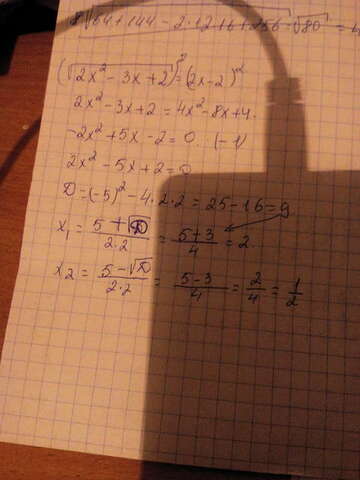 8√64+144-2·12·16+256-√80=4
(√2x²-3x+2)²=(2x-2)²
2x²-3x+2=4x²-8x+4.
-2x²+5x-2=0. (-1)
2x²-5x+2=0
D=(-5)²-4·2·2=25-16=9
x₁=5+√D/2·2=5+3/4=2.
x₂=5-√D/2·2=5-3/4=2/4=1/2